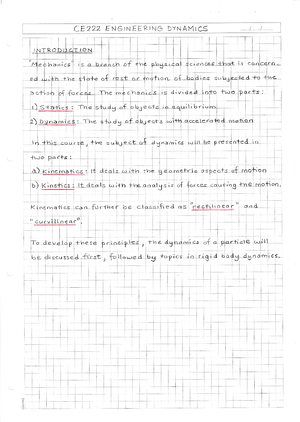 CE222 ENGINEERING DYNAMICS
INTRODUCTION
"Mechanics" is a branch of the physical sciences that is concern
ed with the state of rest or motion of bodies subjected to the
action of forces. The mechanics is divided into two parts:
1) Statics: The study of objects in equilibrium
2) Dynamics: The study of objects with accelerated motion
In this course, the subject of dynamics will be presented in
two parts:
a) Kinematics: It deals with the geometric aspects of motion
b) Kinetics: It deals with the analysis of forces causing the motion.
Kinematics can further be classified as "rectilinear" and
"curvilinear".
To develop these principles, the dynamics of a particle will
be discussed first, followed by topics in rigid body dynamics.